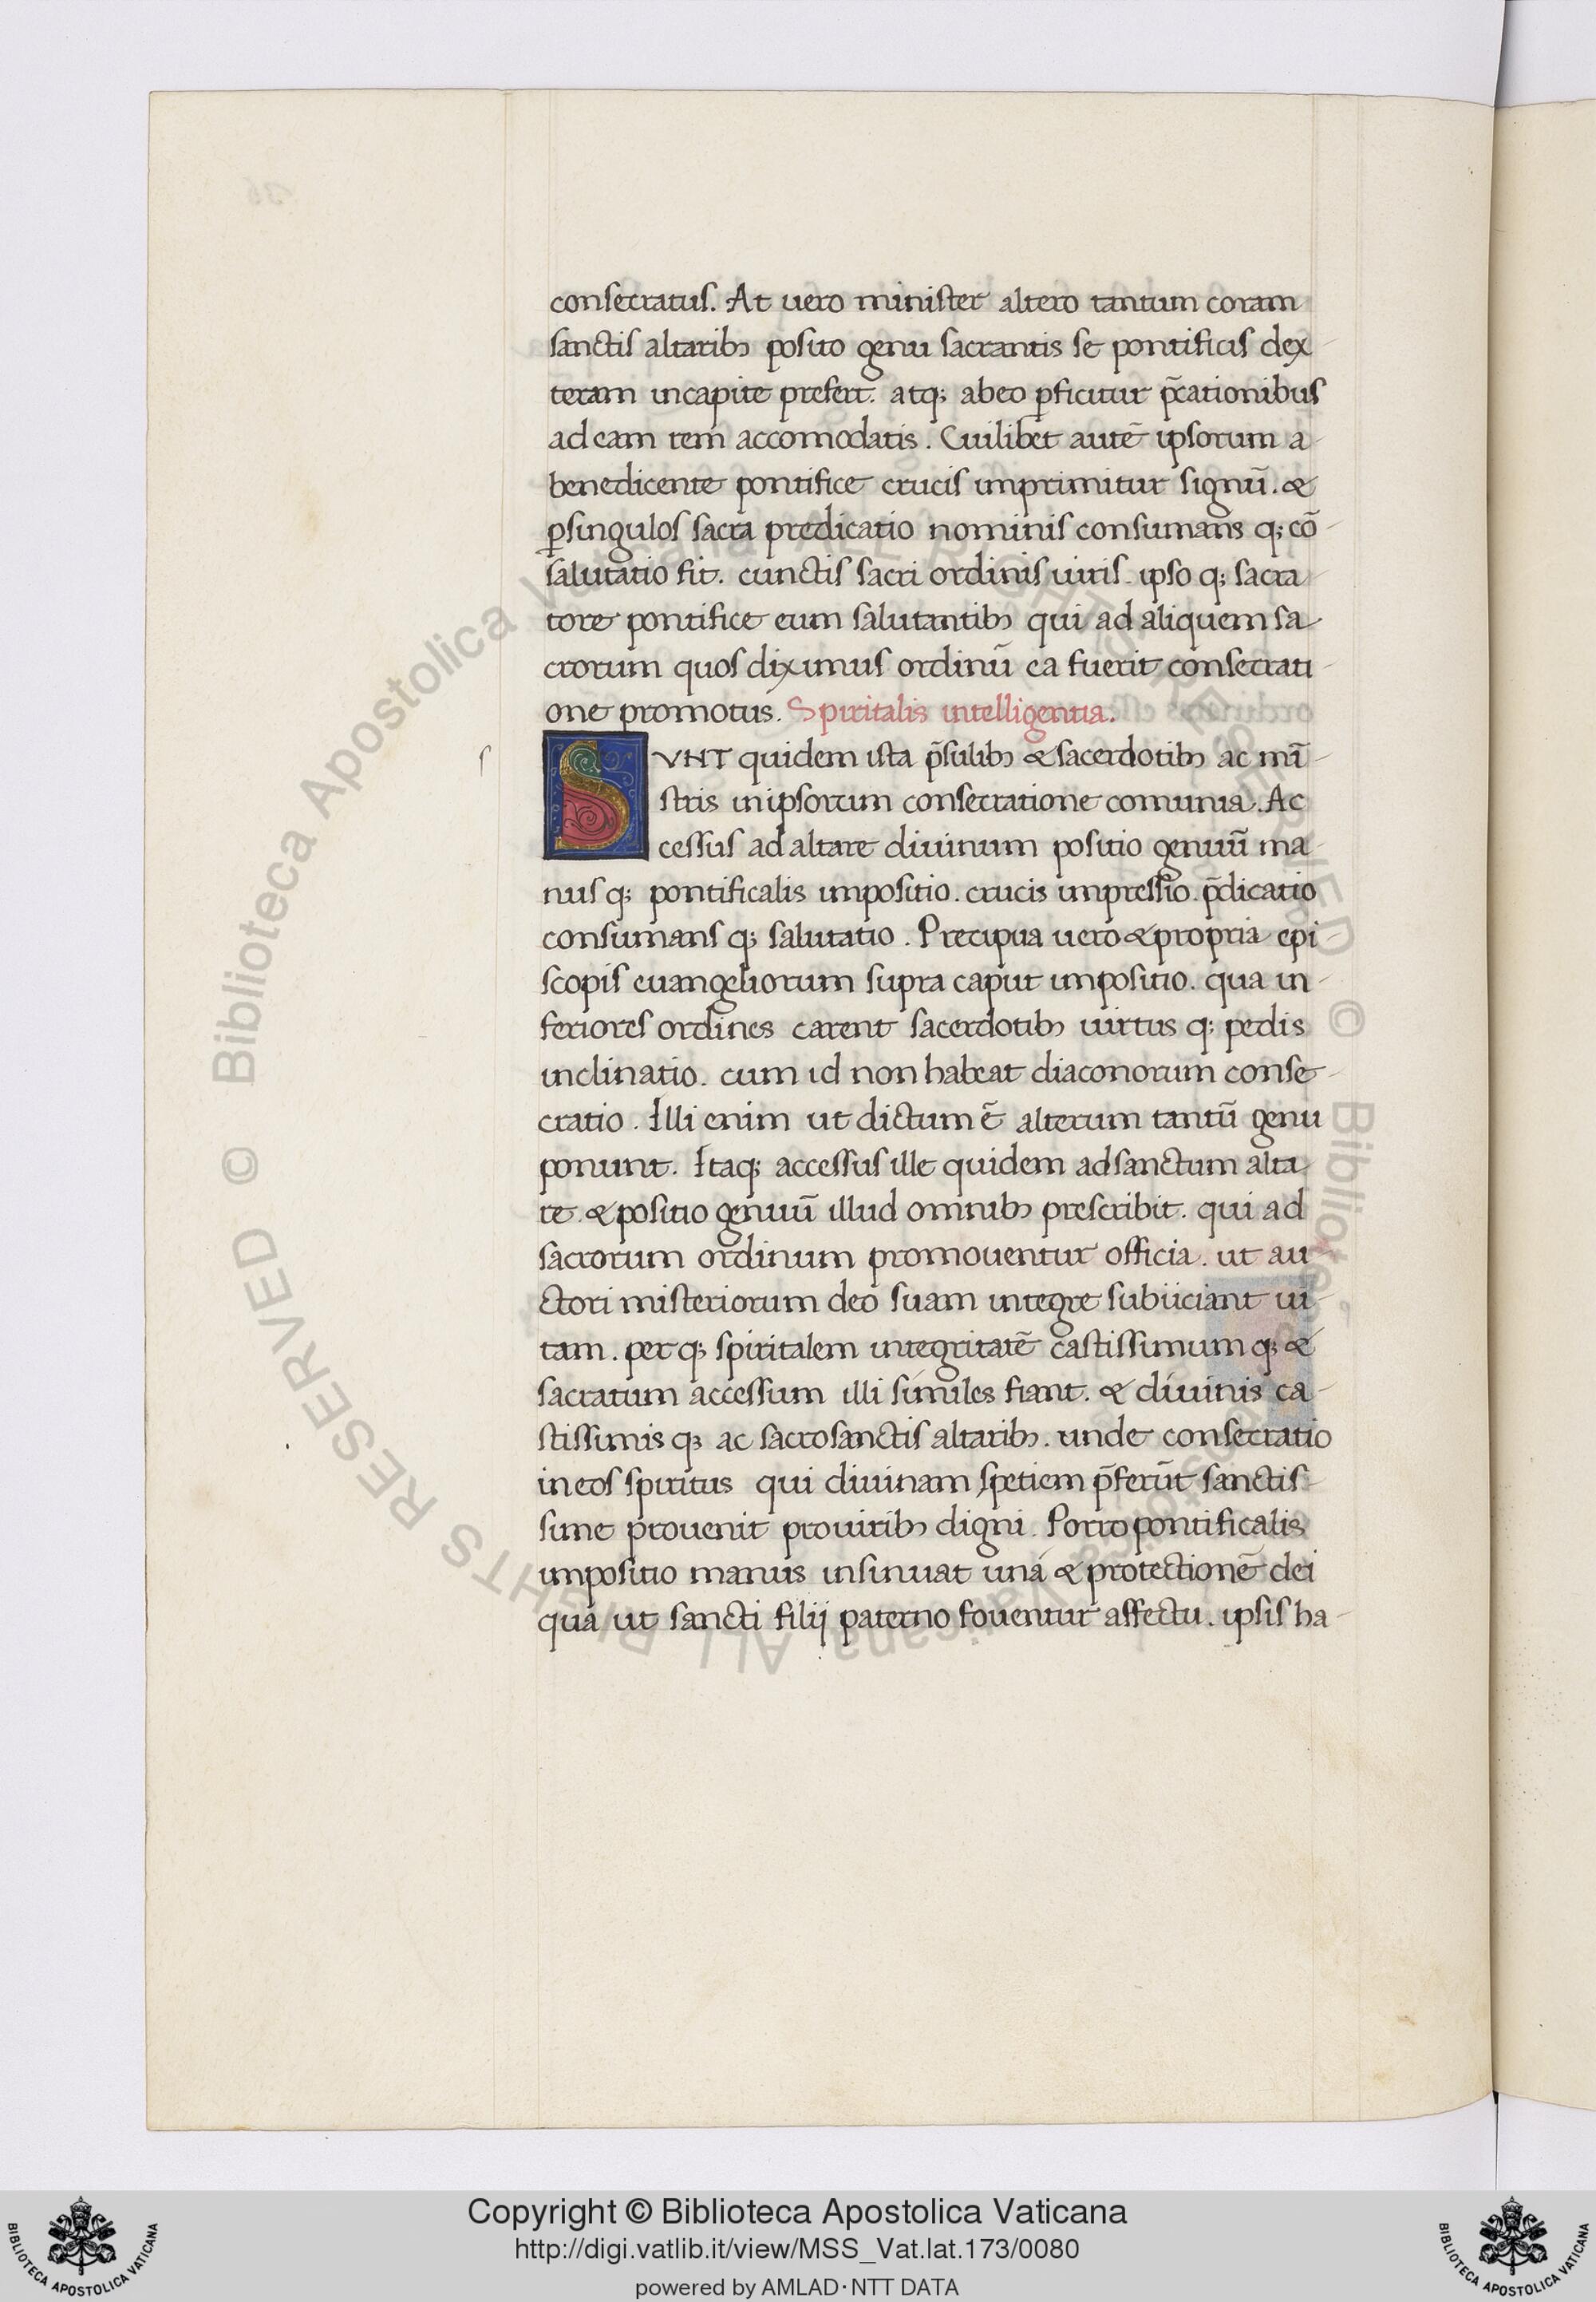 consecratus. At uero minister altero tantum coram
sanctis altaribꝫ posito genu sacrantis se pontificis dex
teram incapite prefert. atqꝫ abeo ꝑficitur p̄cationibus
ad eam rem accomodatis. Cuilibet autē ipsorum a
benedicente pontifice crucis imprimitur signū. &
ꝑsingulos sacra predicatio nominis consumans qꝫ cō
salutatio fit. cunctis sacri ordinis uiris. ipso qꝫ sacra
tore pontifice eum salutantibꝫ qui ad aliquem sa
crorum quos diximus ordinū ea fuerit consecrati
one promotus. Spiritalis intelligentia.
SVNT quidem ista p̄sulibꝫ & sacerdotibꝫ ac mī
stris inipsorum consecratione comunia. Ac
cessus ad altare diuinum positio genuū ma
nus qꝫ pontificalis impositio. crucis impressio. p̄dicatio
consumans qꝫ salutatio. Precipua uero & propria epi
scopis euangeliorum supra caput impositio. qua in
feriores ordines carent sacerdotibꝫ uirtus qꝫ pedis
inclinatio. cum id non habeat diaconorum conse
cratio. Illi enim ut dictum ē alterum tantū genu
ponunt. Itaqꝫ accessus ille quidem adsanctum alta
re & positio genuū illud omnibꝫ prescribit. qui ad
sacrorum ordinum promouentur officia. ut au
ctori misteriorum deo suam integre subiiciant ui
tam. per qꝫ spiritalem integritatē castissimum qꝫ &
sacratum accessum illi similes fiant. & diuinis ca
stissimis qꝫ ac sacrosanctis altaribꝫ. unde consecratio
in eos spiritus qui diuinam spetiem p̄ferūt sanctis
sime prouenit prouiribꝫ digni. Porro pontificalis
impositio manus insinuat unā & protectionē dei
qua ut sancti filij paterno fouentur affectu. ipsis ha
Copyright © Biblioteca Apostolica Vaticana
http://digi.vatlib.it/view/MSS_Vat.lat.173/0080
powered by AMLAD·NTT DATA
BIBLIOTECA APOSTOLICA VATICANA
BIBLIOTECA APOSTOLICA VATICANA
© Biblioteca Apostolica Vaticana ALL RIGHTS RESERVED
© Biblioteca Apostolica Vaticana ALL RIGHTS RESERVED